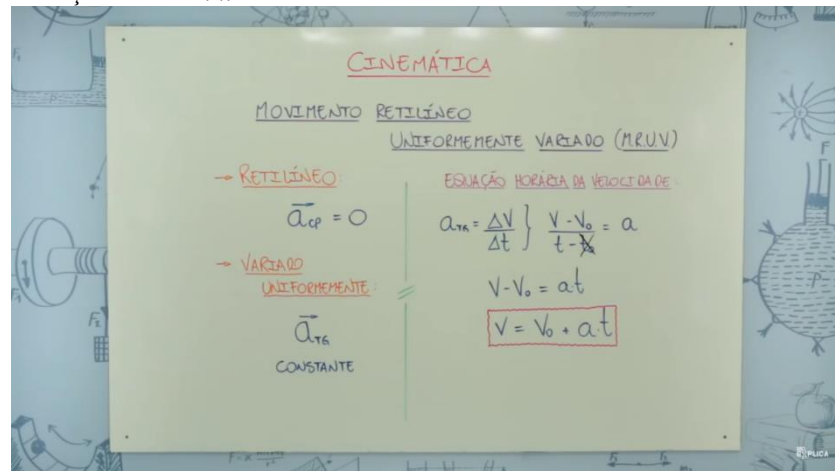 CINEMÁTICA
MOVIMENTO RETILÍNEO
UNIFORMEMENTE VARIADO (M.R.U.V)
→ RETILÍNEO:
a⃗cp = 0
→ VARIADO
UNIFORMEMENTE:
a⃗TG
CONSTANTE
EQUAÇÃO HORÁRIA DA VELOCIDADE:
aTG = ΔV/Δt } (V - V₀)/(t - t₀) = a
V - V₀ = at
V = V₀ + a.t
F₁
F₂
F
P
EXPLICA